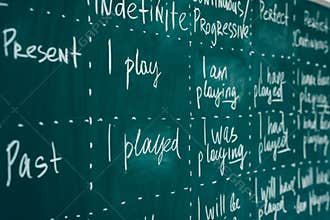 Indefinite Continuous/ Perfect Perfect
Progressive Continuous
Present I play I am playing I have played I have
Past I played I was playing I had played I had
I will be I will have I will have